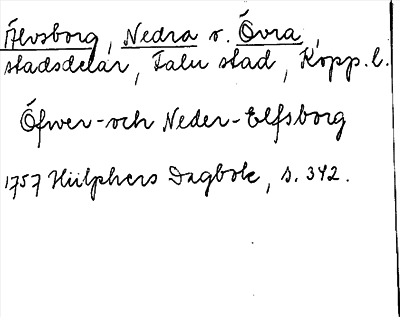 Älvsborg, Nedra o. Övra,
stadsdelar, Falu stad, Kopp. l.
Öfwer- och Neder-Elfsborg
1757 Hülphers Dagbok, s. 342.